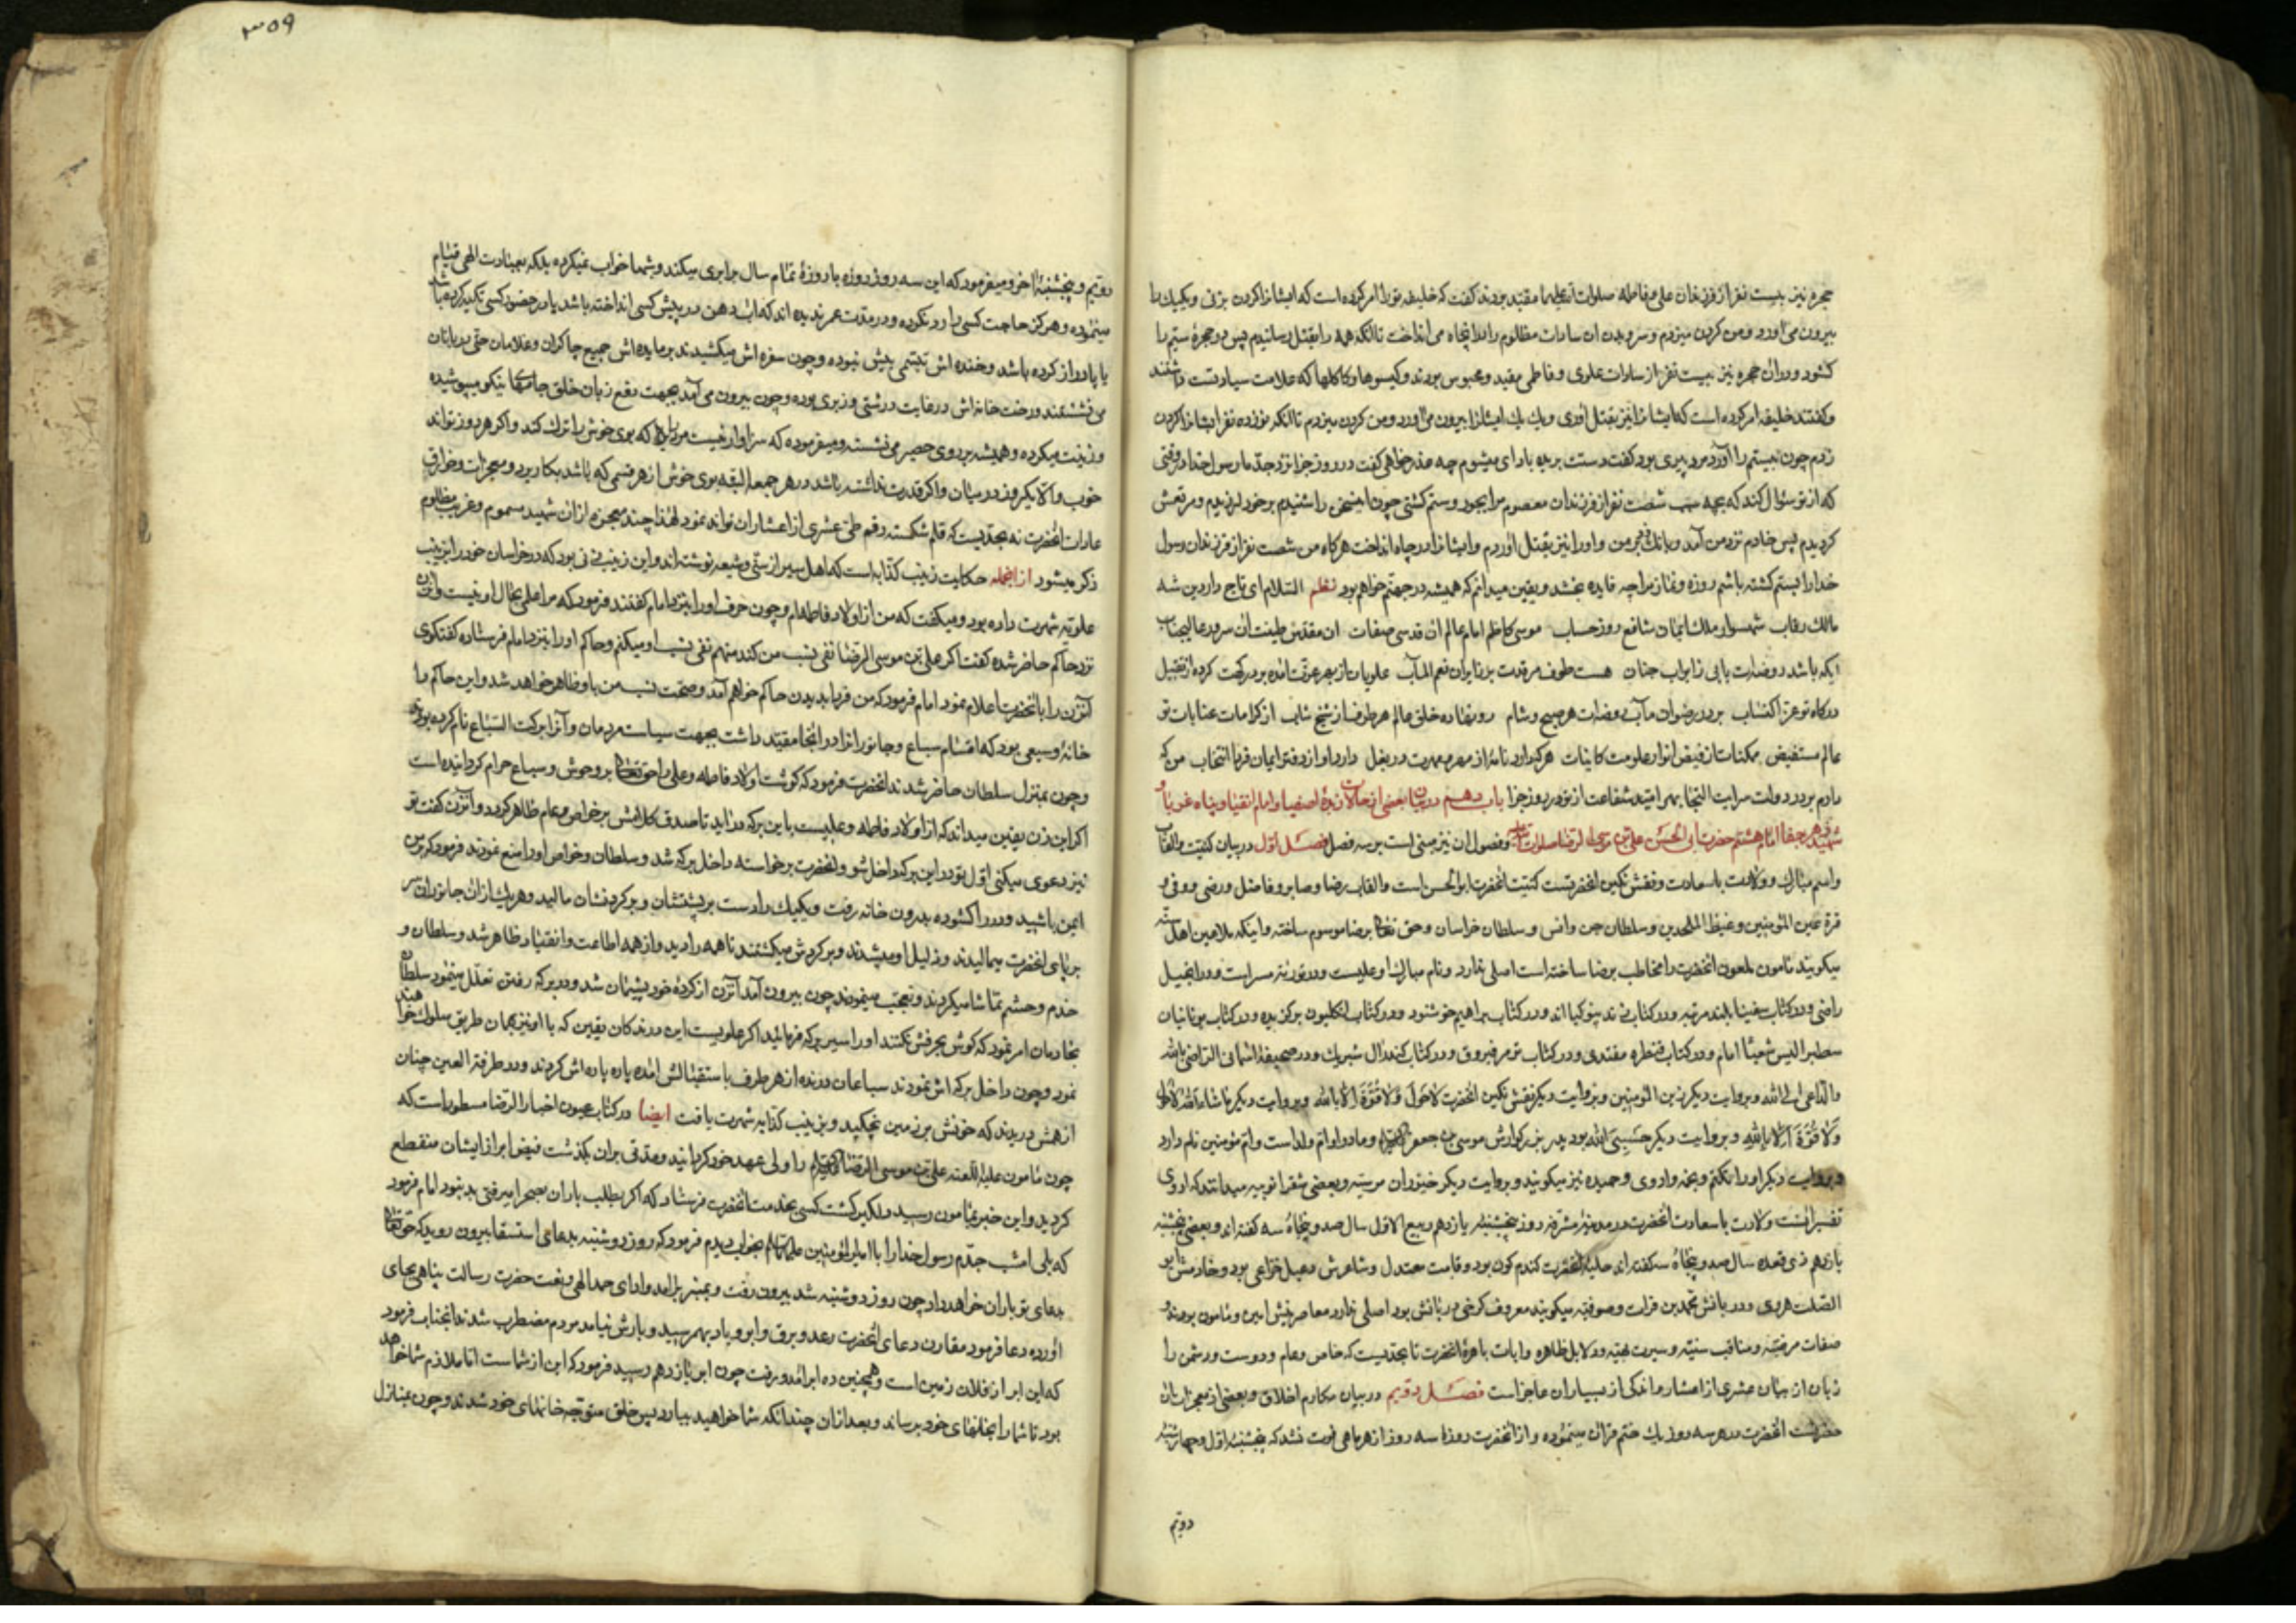 حجره نیز بیست نفر از فرزندان علی و فاطمه صلوات الله علیهما مقید بودند گفت که خلیفه تو را امر کرده است که ایشانرا گردن بزنی و یکیک را
بیرون می آورد و من گردن میزدم و سر و بدن ان سادات مظلوم را در انچاه می انداخت تا انکه همه را بقتل رسانیدم پس در حجرهٔ سیم را
کشود و در ان حجره نیز بیست نفر از سادات علوی و فاطمی مقید و محبوس بودند و کیسوها و کاکلها که علامت سیادتست داشتند
و گفتند خلیفه امر کرده است که ایشانرا نیز بقتل اوری و یک یک ایشانرا بیرون می اورد و من گردن میزدم تا انکه نوزده نفر ایشانرا گردن
زدم چون بیستم را آورد مرد پیری بود گفت دستت بریده باد ای میشوم چه عذر خواهی گفت در روز جزا نزد جد ما رسول خدا در وقتی
که از تو سؤال کند که بچه سبب شصت نفر از فرزندان معصوم مرا بجور و ستم کشتی چون این سخن را شنیدم بر خود لرزیدم و مرتعش
کردیدم پس خادم نزد من آمد و بانک بر من زد و او را نیز بقتل اوردم و ایشانرا در چاه انداخت هرکاه من شصت نفر از فرزندان رسول
خدا را بستم کشته باشم روزه و نماز مرا چه فایده بخشد و یقین میدانم که همیشه در جهنم خواهم بود نظم السلام ای تاج دار دین شه
مالک رقاب شهسوار ملک ایمان شافع روز حساب موسی کاظم امام عالم ان قدسی صفات ان مقدس طینت ان سرور عالیجناب
آیکه باشد روضه‌ات بابی ز ابواب جنان هست طوف مرقدت بر زایران نعم المآب
درکاه تو عز اکتساب بر در رضوان مآب روضه‌ات هر صبح و شام رو نهاده خلق عالم هر طرف از شیخ و شاب از کرامات و عنایات تو
عالم مستفیض ممکنات از فیض انوار علومت کامیاب هرکه او نامهٔ از مهر مهرت در بغل دارد او از دفتر ایمان فرد انتخاب من که
دارم بر در دولت سرایت التجا بهر امید شفاعت از تو در روز جزا باب دهم در بیان بعضی از حالات زبدهٔ اصفیا و امام اتقیا و پناه غربا و
شهید زهر جفا امام هشتم حضرت ابی الحسن علی بن موسی الرضا صلوات الله علیه و فصول ان نیز مبنی است بر سه فصل فصل اول در بیان کنیت و القاب
و اسم مبارک و ولادت باسعادت و نقش نکین انحضرتست کنیت انحضرت ابو الحسن است و القاب رضا و صابر و فاضل و رضی و وفی و
قرة عین المؤمنین و غیظ الملحدین و سلطان جن و انس و سلطان خراسان و حق تعالی برضا موسوم ساخته و اینکه ملاعین اهل سنه
میکویند مامون ملعون انحضرت را مخاطب برضا ساخته است اصلی ندارد و نام مبارکشا و علیست و در توریة مسراست و در انجیل
راضی و در کتاب سفینا بلند مرتبه و در کتاب زند نیوکیا اند و در کتاب براهیم خوشنود و در کتاب انکلیون برکزیده و در کتاب یونانیان
سطبرالیس شمیثا امام و در کتاب قنطره مقتدی و در کتاب تومر فیروق و در کتاب کندرال شبریک و در صحیفهٔ اسمانی الراضی بالله
و الداعی الی الله و بروایت دیکر زین المؤمنین و بروایت دیکر نقش نکین انحضرت لا حول و لا قوة الا بالله و بروایت دیکر ما شاء الله
و لا قوة الا بالله و بروایت دیکر حسبی الله بود پدر بزرکوارش موسی بن جعفر و مادر او ام ولد است و ام مؤمنین نام دارد
و بروایت دیکر او را تکتم و نجمه و اروی و حمیده نیز میکویند و بروایت دیکر خیزران مرسیه و بعضی شقرا نوبیه میدانند که اروی
تفسیر انست ولادت باسعادت انحضرت در مدینهٔ مشرفه روز پنجشنبه یازدهم ربیع الاول سال صد و پنجاه سه کفته اند و بعضی پنجشنبه
یازدهم ذی قعده سال صد و پنجاه سه کفته اند حلیهٔ انحضرت کندم کون بود و قامت معتدل و شاعرش دعبل خزاعی بود و خادمش ابو
الصلت هروی و دربانش محمد بن فرات و صوفیه میکویند معروف کرخی دربانش بود اصلی ندارد معاصرینش امین و مامون بودند و
صفات مرضیه و مناقب سنیه و سیرت بهیه و دلایل ظاهره و ایات باهرهٔ انحضرت تا بحدیست که خاص و عام و دوست و دشمن را
زبان از بیان عشری از اعشار و اندکی از بسیار ان عاجز است فصل دویم در بیان مکارم اخلاق و بعضی از معجزات ان
حضرتست انحضرت در هر سه روز یک ختم قران مینموده و از انحضرت روزهٔ سه روز از هر ماهی فوت نشد که پنجشنبهٔ اول و چهارشنبهٔ
دویم
۳۵۹
دویم و پنجشنبهٔ اخر و میفرمود که این سه روز روزه با روزهٔ تمام سال برابری میکند و شبها خواب نمیکرده بلکه بعبادت الهی قیام
مینموده و هرکز حاجت کسی را رد نکرده و در مدت عمر ندیده اند که اب دهن در پیش کسی انداخته باشد یا در حضور کسی تکیه کرده باشد
یا پا دراز کرده باشد و خنده اش تبسمی بیش نبوده و چون سفره اش میکشیدند بر مایده اش جمیع چاکران و غلامان حتی دربانان
می نشستند و رخت خانه اش در غایت درشتی و زبری بوده و چون بیرون می آمد بجهت دفع زبان خلق جامهای نیکو میپوشیده
و زینت میکرده و همیشه بر روی حصیر می نشسته و میفرموده که سزاوار نیست مرد را که بوی خوش را ترک کند و اکر هر روز تواند
خوب و الا یکروز در میان و اکر قدرت نداشته باشد در هر جمعه البته بوی خوش از هر قسمی که باشد بکار برد و معجزات و خوارق
عادات انحضرت نه بحدیست که قلم شکسته رقم طی عشری از اعشار ان تواند نمود لهذا چند معجزه از ان شهید مسموم و غریب مظلوم
ذکر میشود از انجمله حکایت زینب کذابه است که اهل سیر از سنی و شیعه نوشته اند و این زینب زنی بود که در خراسان خود را بزینب
علویه شهرت داده بود و میکفت که من از اولاد فاطمه ام و چون حرف او را بنزد امام کفتند فرمود که مرا علمی بحال او نیست و آن زن
نزد حاکم حاضر شده کفت اکر علی بن موسی الرضا نفی نسب من کند منهم نفی نسب او میکنم و حاکم او را بنزد امام فرستاده کفتکوی
آنزن را بانحضرت اعلام نمود امام فرمود که من فردا بدیدن حاکم خواهم آمد و صحت نسب من باو ظاهر خواهد شد و این حاکم را
خانهٔ وسیعی بود که اقسام سباع و جانورانرا در انجا مقید داشت بجهت سیاست مردمان و آنرا برکت السباع نام کرده بود
و چون بمنزل سلطان حاضر شدند انحضرت فرمود که کوشت اولاد فاطمه و علی را حق تعالی بر وحوش و سباع حرام کردانیده است
اکر این زن یقین میداند که از اولاد فاطمه و علیست باین برکه در اید تا صدق کلامش بر خواص و عام ظاهر کردد و آنزن کفت تو
نیز دعوی میکنی اول تو در این برکه داخل شو و انحضرت برخواسته داخل برکه شد و سلطان و خواص او را منع نمودند فرمود که بر من
ایمن باشید و در را کشوده بدرون خانه رفت و یکیک را دست بر پشتشان و بر کردنشان مالید و هر یک از ان جانوران سر
بر پای انحضرت میمالیدند و ذلیل او میشدند و بر کردش میکشتند تا همه را دید و از همه اطاعت و انقیاد ظاهر شد و سلطان و
خدم و حشم تماشا میکردند و تعجب مینمودند چون بیرون آمد آنزن از کردهٔ خود پشیمان شد و در برکه رفتن تعلل مینمود سلطان
بخادمان امر نمود که کوش بحرفش نکنند او را اسیر برکه فرمائید اکر علویست این درندکان یقین که با او نیز بهمان طریق سلوک خواهند
نمود و چون داخل برکه اش نمودند سباعان درنده از هر طرف باستقبالش امده پاره پاره اش کردند و در طرفة العین چنان
از همش دریدند که خونش بر زمین نچکید و بزینب کذابه شهرت یافت ایضا در کتاب عیون اخبار الرضا مسطور است که
چون مامون علیه اللعنه علی بن موسی الرضا را ولی عهد خود کردانید و مدتی بران بکذشت فیض ابر از ایشان منقطع
کردید و این خبر بمامون رسید و دلکیر کشت کسی بخدمت انحضرت فرستاد که اکر بطلب باران بصحرا میرفتی بد نبود امام فرمود
که بلی امشب جدم رسول خدا را با امیر المؤمنین علیهما السلام بخواب دیدم فرمود که روز دوشنبه بدعای استسقا بیرون رو بدرستیکه حق تعالی
بدعای تو باران خواهد داد چون روز دوشنبه شد بیرون رفت و بمنبر برامد و ادای حمد الهی و نعت حضرت رسالت پناهی بجای
اورده دعا فرمود مقارن دعای انحضرت رعد و برق و ابر و باد بهم رسید و بارش نیامد مردم مضطرب شدند انجناب فرمود
که این ابر از فلان زمین است و همچنین ده ابر امد و رفت چون ابر یازدهم رسید فرمود که این از شماست اما ملازم شما خواهد
بود تا شما را بخانهای خود برساند و بعد از ان چندانکه شما خواهید ببارد پس خلق متوجه خانهای خود شدند و چون بمنازل